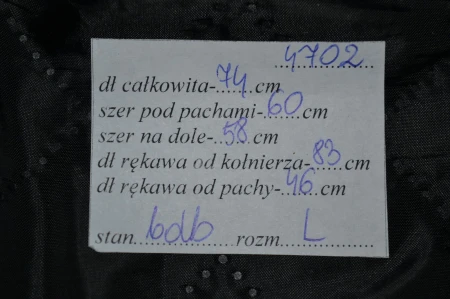 4702
dł całkowita-74.cm
szer pod pachami-60cm
szer na dole-58.cm
dł rękawa od kołnierza-83.cm
dł rękawa od pachy-46.cm
stan bdb rozm. L